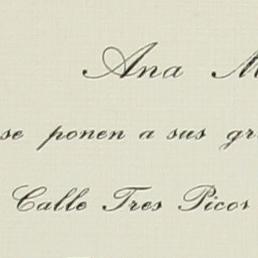 Ana M
se ponen a sus gr
Calle Tres Picos